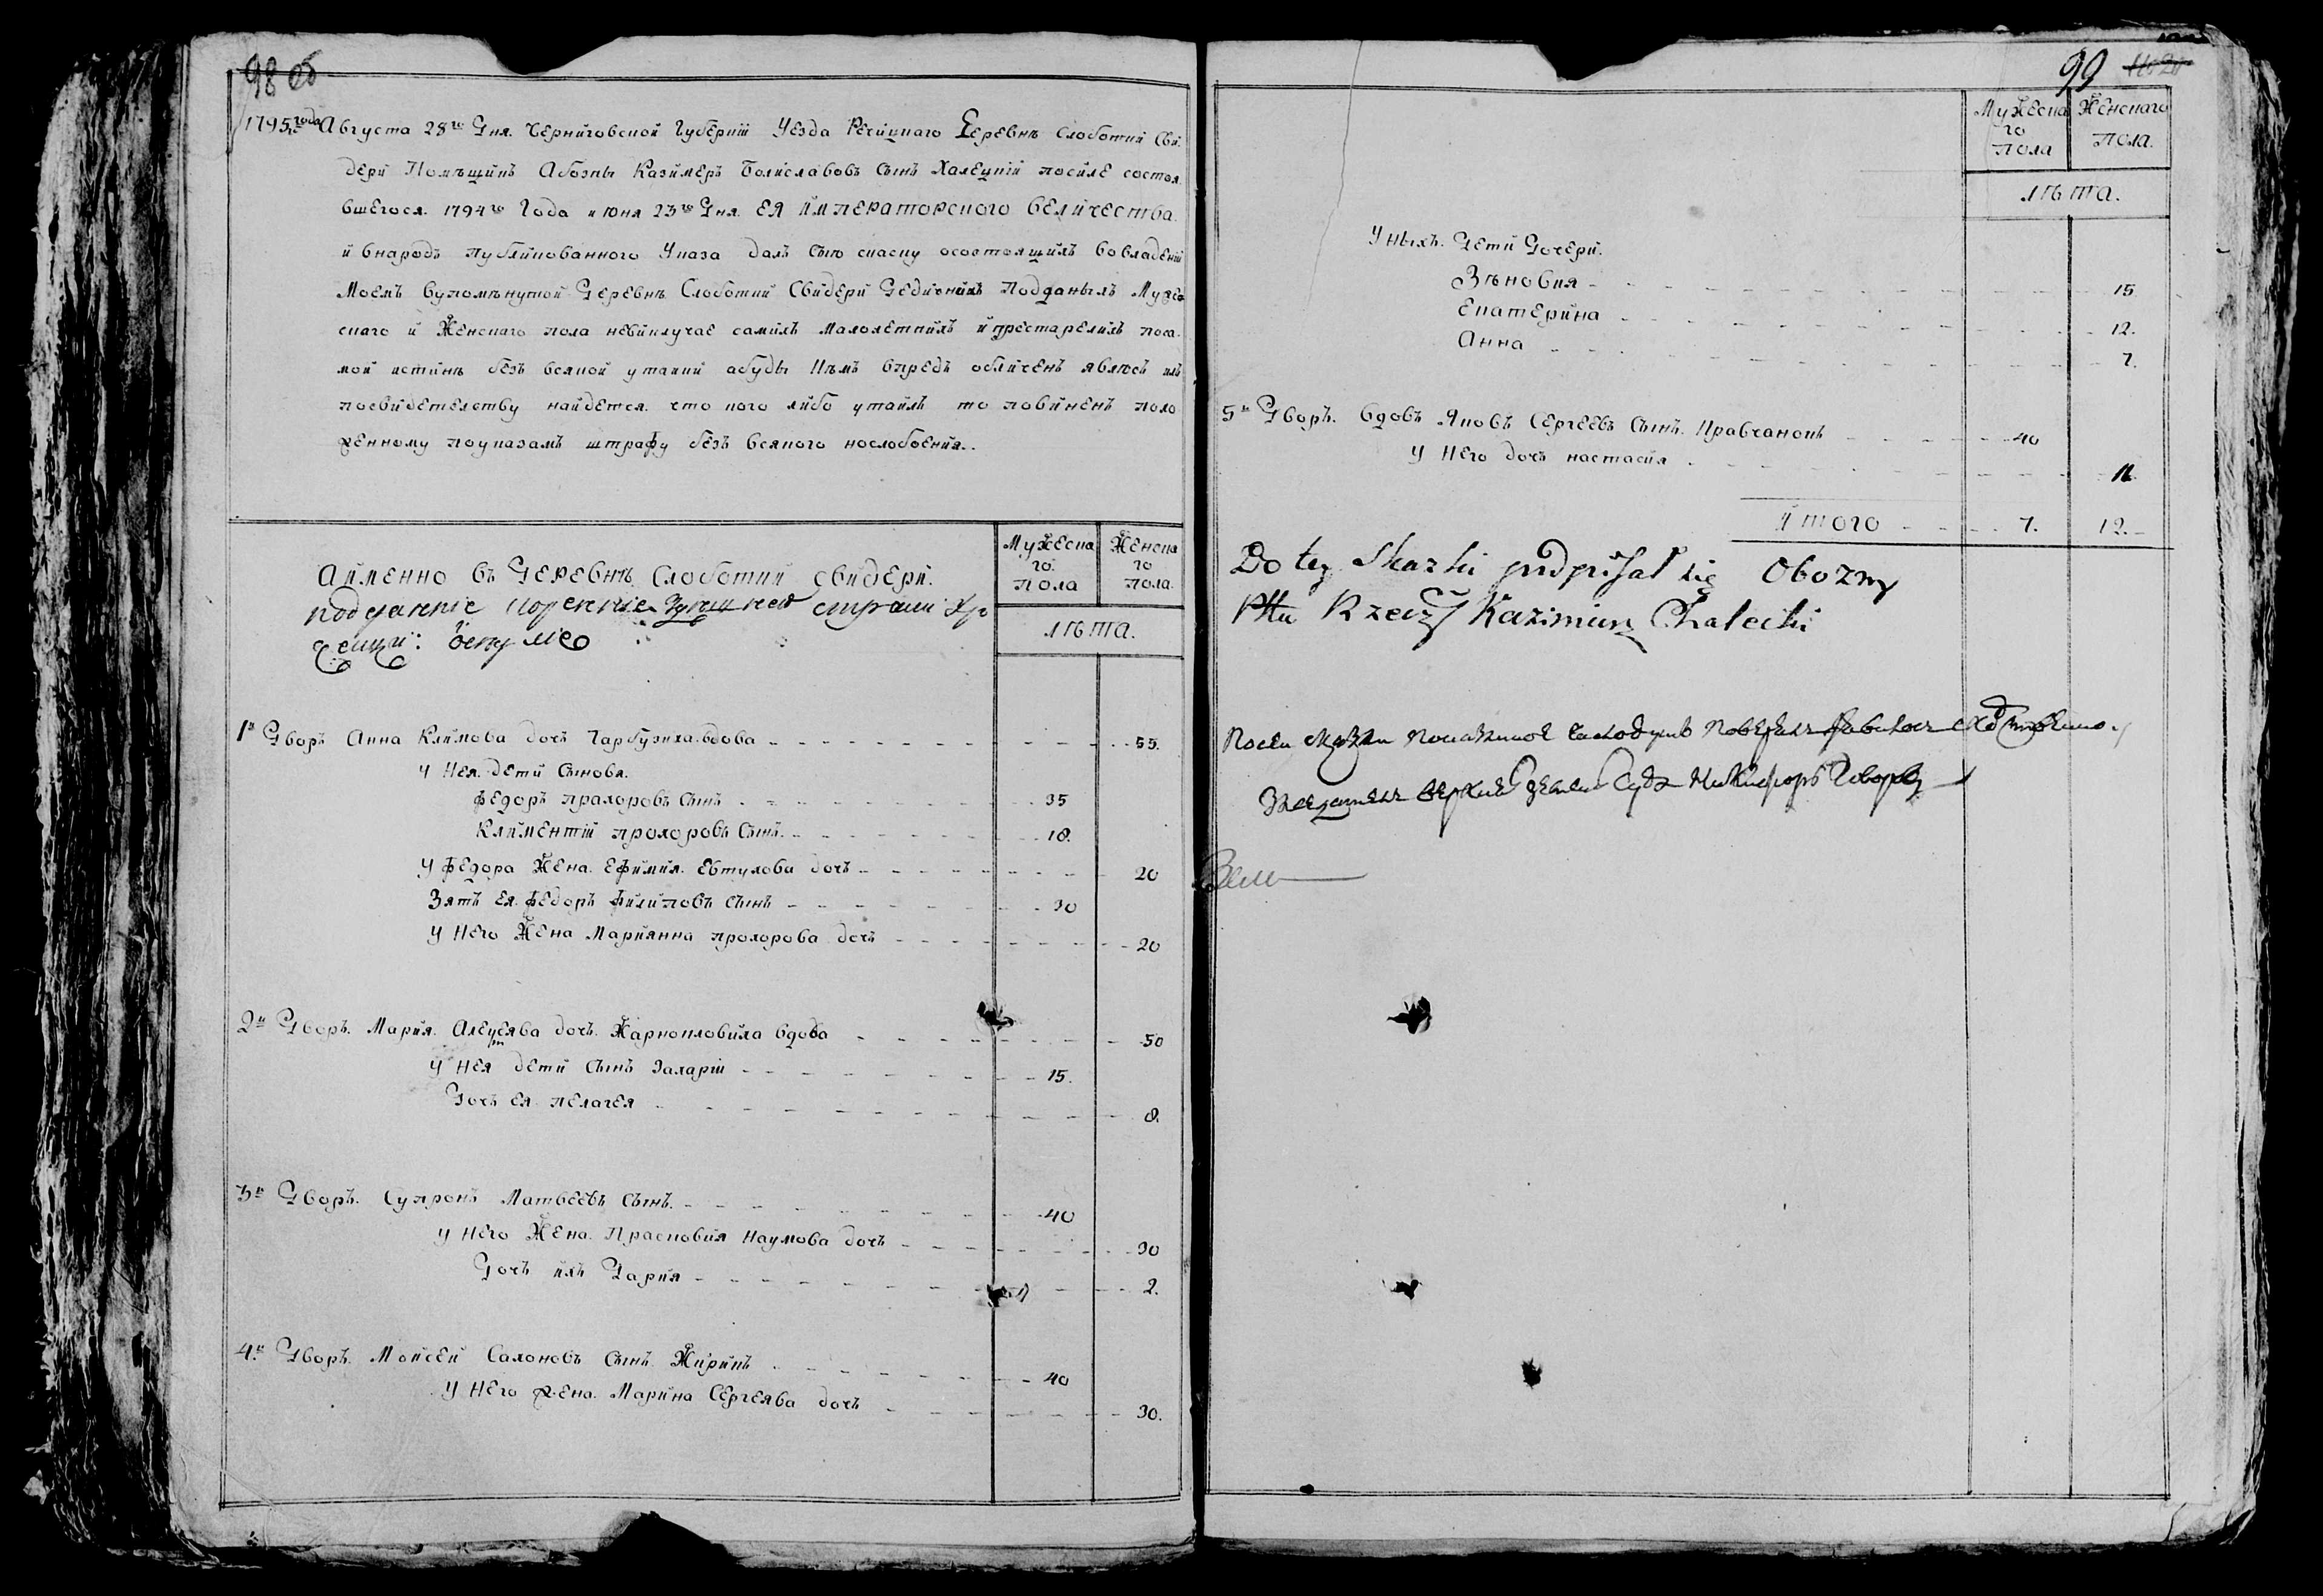 98 об
1795го года Августа 28го Дня. Черниговской Губернїи Уезда Речицкаго Деревнѣ Слободки Сви
дерки Помѣщикъ Абозны Казимеръ Болиславовъ Сынъ Халецкїй посиле состоя
вшегося. 1794го Года июня 23го Дня. ЕЯ ИМПЕРАТОРСКОГО ВЕЛИЧЕСТВА.
и внародъ публикованного Указа далъ сию скаску осостоящихъ вовладенїи
Моемъ вупомѣнутой Деревнѣ Слободки Свидерки Дедичнихъ Подданыхъ Мужес
скаго и Женскаго пола невиключае самихъ малолетнихъ и престарелихъ поса
мой истинѣ безъ всякой утайки абуды кѣмъ впредь обличенъ явлюсь илъ
посвидетелству найдется. что кого либо утаилъ то повиненъ поло
женному поуказамъ штрафу безъ всякого послобления..
Мужеска
го
пола
Женска
го
пола.
лѣта.
Аимменно въ Деревнѣ Слободки Свидерки.
подданние коренние
1й Дворъ Анна Климова дочъ Гарбузиха вдова 55.
у Нея. дети Сынова.
Федоръ прохоровъ Сынъ 35
Климентїй прохоровъ Сынъ. 18.
у Федора Жена. Ефимия. Евтухова дочъ 20
Зять ея Федоръ Филиповъ Сынъ 30
у Него Жена Марианна прохорова дочъ 20
2й Дворъ. Мария. дочъ. вдова 50
у Нея дети Сынъ Захарїй 15.
Дочъ ея пелагея 8.
3й Дворъ. Супронъ Матвеевъ Сынъ. 40
у Него Жена. Прасковия Наумова дочъ 30
Дочъ ихъ Дария 2.
4й Дворъ. Моисей Сахоновъ Сынъ Жирикъ 40
У Него жена. Марина Сергеява дочъ 30.
99
Мужеска
го
пола
Женскаго
пола.
лѣта.
У Ныхъ. Дети Дочери.
Зѣновия 15
Екатерина 12.
Анна 7.
5й Дворъ. вдовъ Яковъ Сергеевъ Сынъ. Кравчанокъ 40
У Него дочъ настасия
Итого 7. 12.
Do tey Skazki podpisał się Obozny
Pttu Rzecz Kazimierz Chalecki
Посей скаски показаное число душъ
Заседатель верхней Суда Никифоръ